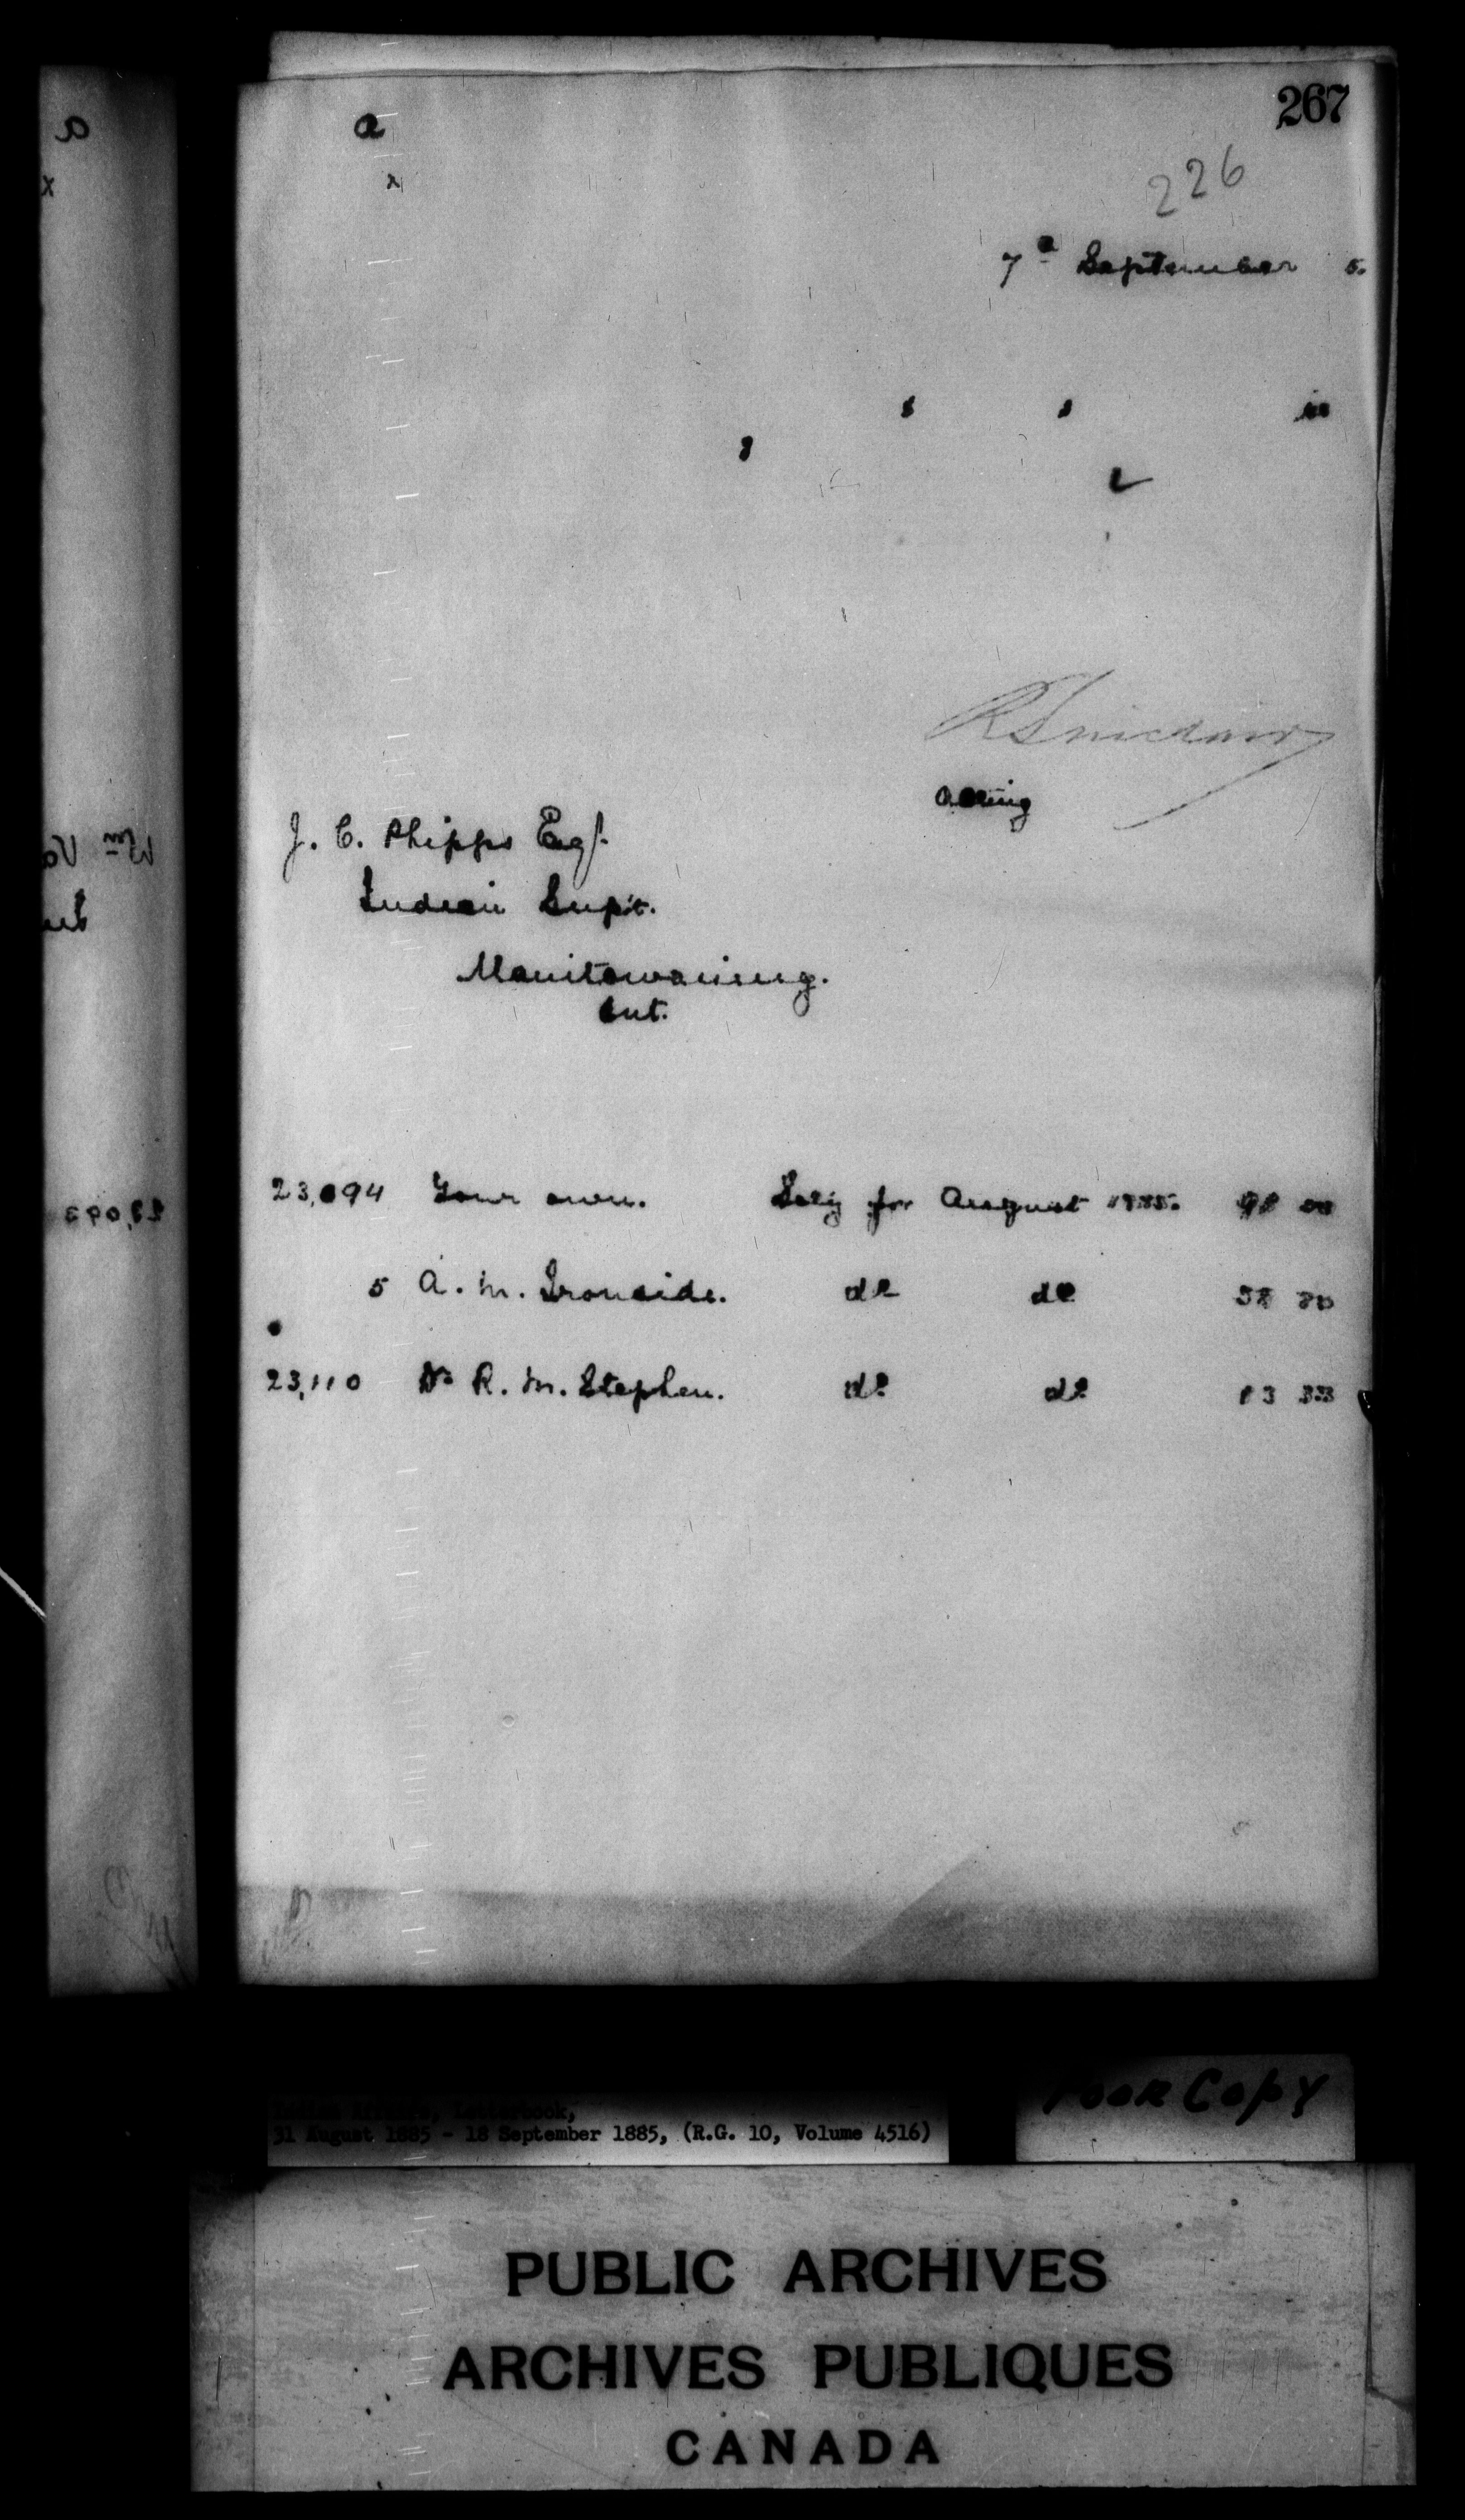 267
a
x
226
7th September 5.
s s in
s
2
R Sinclair
Acting
J. C. Phipps Esq.
Indian Supt.
Manitowaning.
Ont.
23,094 Your own. Saly for August 1885. 98 00
5 A. M. Ironside. do do 58 80
23,110 Dr R. M. Stephen. do do 83 33
Indian Affairs, Letterbook,
31 August 1885 - 18 September 1885, (R.G. 10, Volume 4516)
Poor Copy
PUBLIC ARCHIVES
ARCHIVES PUBLIQUES
CANADA